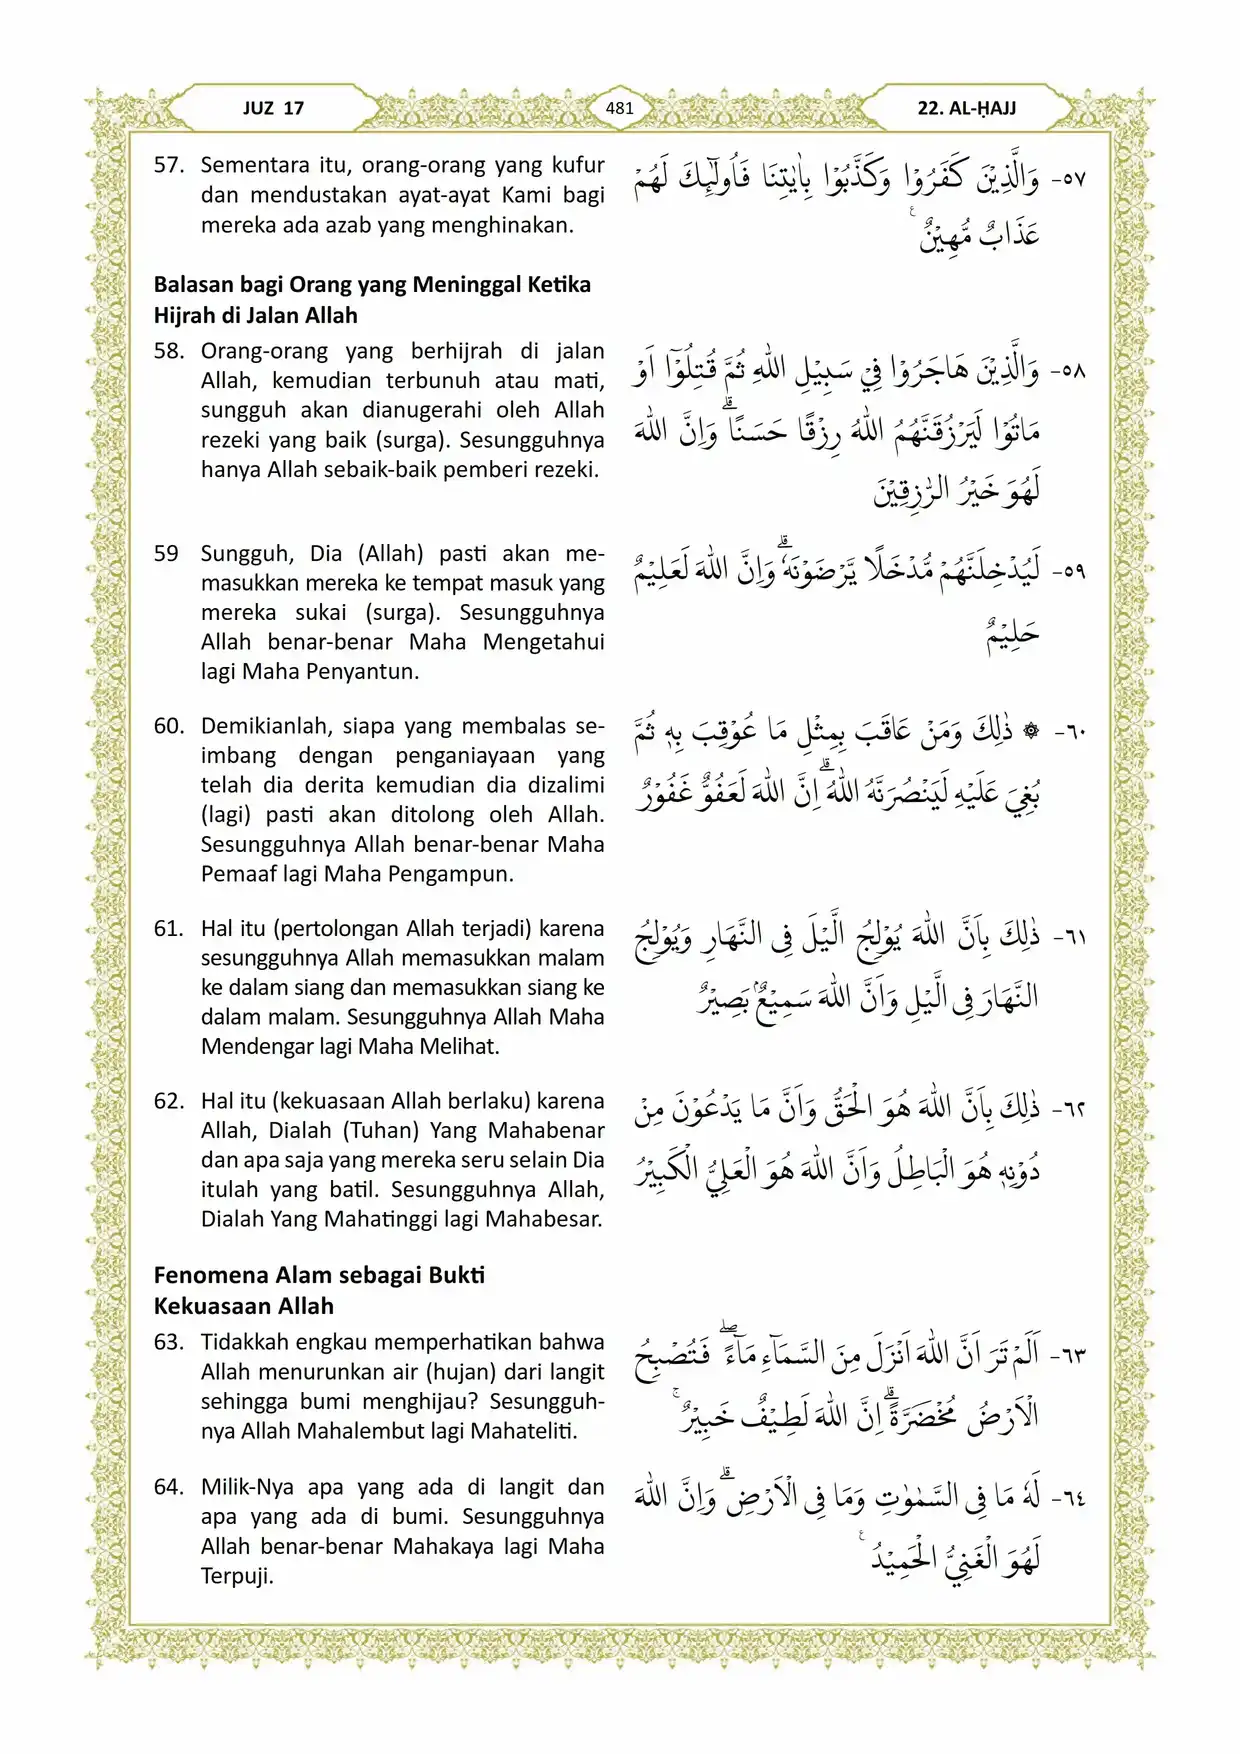 JUZ 17
481
22. AL-ḤAJJ
57. Sementara itu, orang-orang yang kufur
dan mendustakan ayat-ayat Kami bagi
mereka ada azab yang menghinakan.
٥٧- وَالَّذِيْنَ كَفَرُوْا وَكَذَّبُوْا بِاٰيٰتِنَا فَاُولٰۤىِٕكَ لَهُمْ
عَذَابٌ مُّهِيْنٌ ࣖ
Balasan bagi Orang yang Meninggal Ketika
Hijrah di Jalan Allah
58. Orang-orang yang berhijrah di jalan
Allah, kemudian terbunuh atau mati,
sungguh akan dianugerahi oleh Allah
rezeki yang baik (surga). Sesungguhnya
hanya Allah sebaik-baik pemberi rezeki.
٥٨- وَالَّذِيْنَ هَاجَرُوْا فِيْ سَبِيْلِ اللّٰهِ ثُمَّ قُتِلُوْٓا اَوْ
مَاتُوْا لَيَرْزُقَنَّهُمُ اللّٰهُ رِزْقًا حَسَنًاۗ وَاِنَّ اللّٰهَ
لَهُوَ خَيْرُ الرّٰزِقِيْنَ
59 Sungguh, Dia (Allah) pasti akan me-
masukkan mereka ke tempat masuk yang
mereka sukai (surga). Sesungguhnya
Allah benar-benar Maha Mengetahui
lagi Maha Penyantun.
٥٩- لَيُدْخِلَنَّهُمْ مُّدْخَلًا يَّرْضَوْنَهٗۗ وَاِنَّ اللّٰهَ لَعَلِيْمٌ
حَلِيْمٌ
60. Demikianlah, siapa yang membalas se-
imbang dengan penganiayaan yang
telah dia derita kemudian dia dizalimi
(lagi) pasti akan ditolong oleh Allah.
Sesungguhnya Allah benar-benar Maha
Pemaaf lagi Maha Pengampun.
٦٠- ۞ ذٰلِكَ وَمَنْ عَاقَبَ بِمِثْلِ مَا عُوْقِبَ بِهٖ ثُمَّ
بُغِيَ عَلَيْهِ لَيَنْصُرَنَّهُ اللّٰهُ ۗاِنَّ اللّٰهَ لَعَفُوٌّ غَفُوْرٌ
61. Hal itu (pertolongan Allah terjadi) karena
sesungguhnya Allah memasukkan malam
ke dalam siang dan memasukkan siang ke
dalam malam. Sesungguhnya Allah Maha
Mendengar lagi Maha Melihat.
٦١- ذٰلِكَ بِاَنَّ اللّٰهَ يُوْلِجُ الَّيْلَ فِى النَّهَارِ وَيُوْلِجُ
النَّهَارَ فِى الَّيْلِ وَاَنَّ اللّٰهَ سَمِيْعٌۢ بَصِيْرٌ
62. Hal itu (kekuasaan Allah berlaku) karena
Allah, Dialah (Tuhan) Yang Mahabenar
dan apa saja yang mereka seru selain Dia
itulah yang batil. Sesungguhnya Allah,
Dialah Yang Mahatinggi lagi Mahabesar.
٦٢- ذٰلِكَ بِاَنَّ اللّٰهَ هُوَ الْحَقُّ وَاَنَّ مَا يَدْعُوْنَ مِنْ
دُوْنِهٖ هُوَ الْبَاطِلُ وَاَنَّ اللّٰهَ هُوَ الْعَلِيُّ الْكَبِيْرُ
Fenomena Alam sebagai Bukti
Kekuasaan Allah
63. Tidakkah engkau memperhatikan bahwa
Allah menurunkan air (hujan) dari langit
sehingga bumi menghijau? Sesungguh-
nya Allah Mahalembut lagi Mahateliti.
٦٣- اَلَمْ تَرَ اَنَّ اللّٰهَ اَنْزَلَ مِنَ السَّمَاۤءِ مَاۤءًۖ فَتُصْبِحُ
الْاَرْضُ مُخْضَرَّةًۗ اِنَّ اللّٰهَ لَطِيْفٌ خَبِيْرٌ ۚ
64. Milik-Nya apa yang ada di langit dan
apa yang ada di bumi. Sesungguhnya
Allah benar-benar Mahakaya lagi Maha
Terpuji.
٦٤- لَهٗ مَا فِى السَّمٰوٰتِ وَمَا فِى الْاَرْضِۗ وَاِنَّ اللّٰهَ
لَهُوَ الْغَنِيُّ الْحَمِيْدُ ࣖ